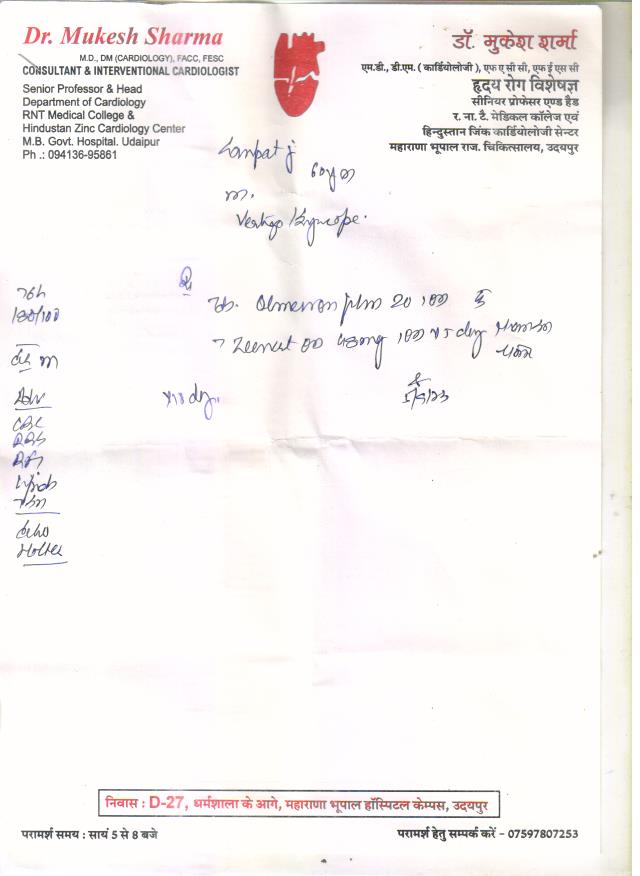 Dr. Mukesh Sharma
M.D., DM (CARDIOLOGY), FACC, FESC
CONSULTANT & INTERVENTIONAL CARDIOLOGIST
Senior Professor & Head
Department of Cardiology
RNT Medical College &
Hindustan Zinc Cardiology Center
M.B. Govt. Hospital. Udaipur
Ph .: 094136-95861
डॉ. मुकेश शर्मा
एम.डी., डी.एम. ( कार्डियोलोजी ), एफ ए सी सी, एफ ई एस सी
हृदय रोग विशेषज्ञ
सीनियर प्रोफेसर एण्ड हैड
र. ना. टै. मेडिकल कॉलेज एवं
हिन्दुस्तान जिंक कार्डियोलोजी सेन्टर
महाराणा भूपाल राज. चिकित्सालय, उदयपुर
60y
m.
Vertigo / Syncope.
180/100
20
Adv
CBC
RBS
RFT
Lipid
TSH
Echo
Holter
निवास : D-27, धर्मशाला के आगे, महाराणा भूपाल हॉस्पिटल केम्पस, उदयपुर
परामर्श समय : सायं 5 से 8 बजे
परामर्श हेतु सम्पर्क करें - 07597807253